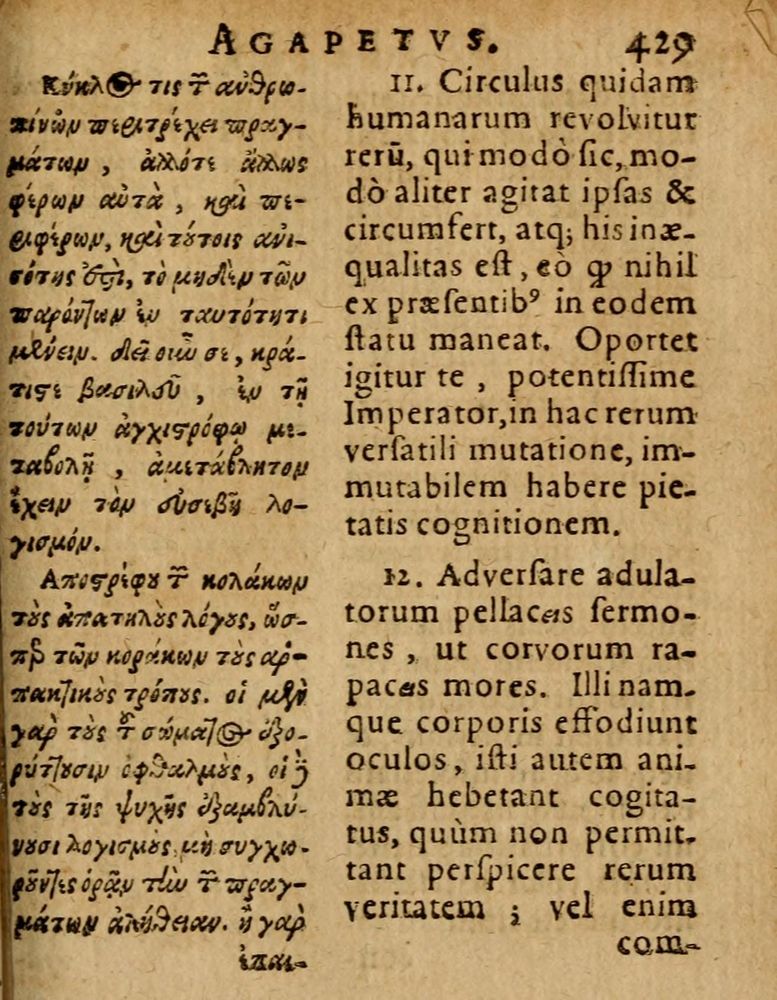 AGAPETVS. 429
Κύκλος τις τῶν ἀνθρω-
πίνων περιτρέχει πραγ-
μάτων , ἄλλοτε ἄλλως
φέρων αὐτὰ , καὶ πε-
ριφέρων, καὶ τούτοις ἀνι-
σότης ἐστὶ, τὸ μηδὲν τῶν
παρόντων ἐν ταυτότητι
μένειν. Δεῖ οὖν σε, κρά-
τιστε βασιλεῦ , ἐν τῇ
τούτων ἀγχιστρόφῳ με-
ταβολῇ , ἀμετάβλητον
ἔχειν τὸν εὐσεβῆ λο-
γισμόν.
Αποστρέφου τῶν κολάκων
τοὺς ἀπατηλοὺς λόγους, ὥσ-
περ τῶν κοράκων τοὺς ἁρ-
πακτικοὺς τρόπους. οἱ μὲν
γὰρ τοὺς τοῦ σώματος ἐξο-
ρύττουσιν ὀφθαλμοὺς, οἱ δὲ
τοὺς τῆς ψυχῆς ἐξαμβλύ-
νουσι λογισμοὺς, μὴ συγχω-
ροῦντες ὁρᾷν τὴν τῶν πραγ-
μάτων ἀλήθειαν. ἢ γὰρ
ἐπαι-
11. Circulus quidam
humanarum revolvitur
rerū, qui modò ſic, mo-
dò aliter agitat ipſas &
circumfert, atq; his inæ-
qualitas eſt, eò ꝙ nihil
ex præſentibꝰ in eodem
ſtatu maneat. Oportet
igitur te , potentiſſime
Imperator, in hac rerum
verſatili mutatione, im-
mutabilem habere pie-
tatis cognitionem.
12. Adverſare adula-
torum pellaces ſermo-
nes , ut corvorum ra-
paces mores. Illi nam-
que corporis effodiunt
oculos, iſti autem ani-
mæ hebetant cogita-
tus, quùm non permit-
tant perſpicere rerum
veritatem ; vel enim
com-